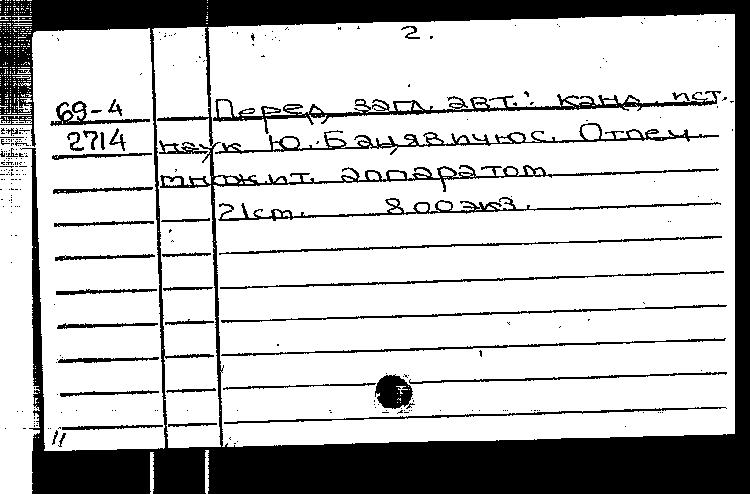 2.
69-4 Перед загл. авт.: канд. ист.
2714 наук Ю. Бацявичюс. Отпеч.
множит. аппаратом
21 см. 800 экз.
11